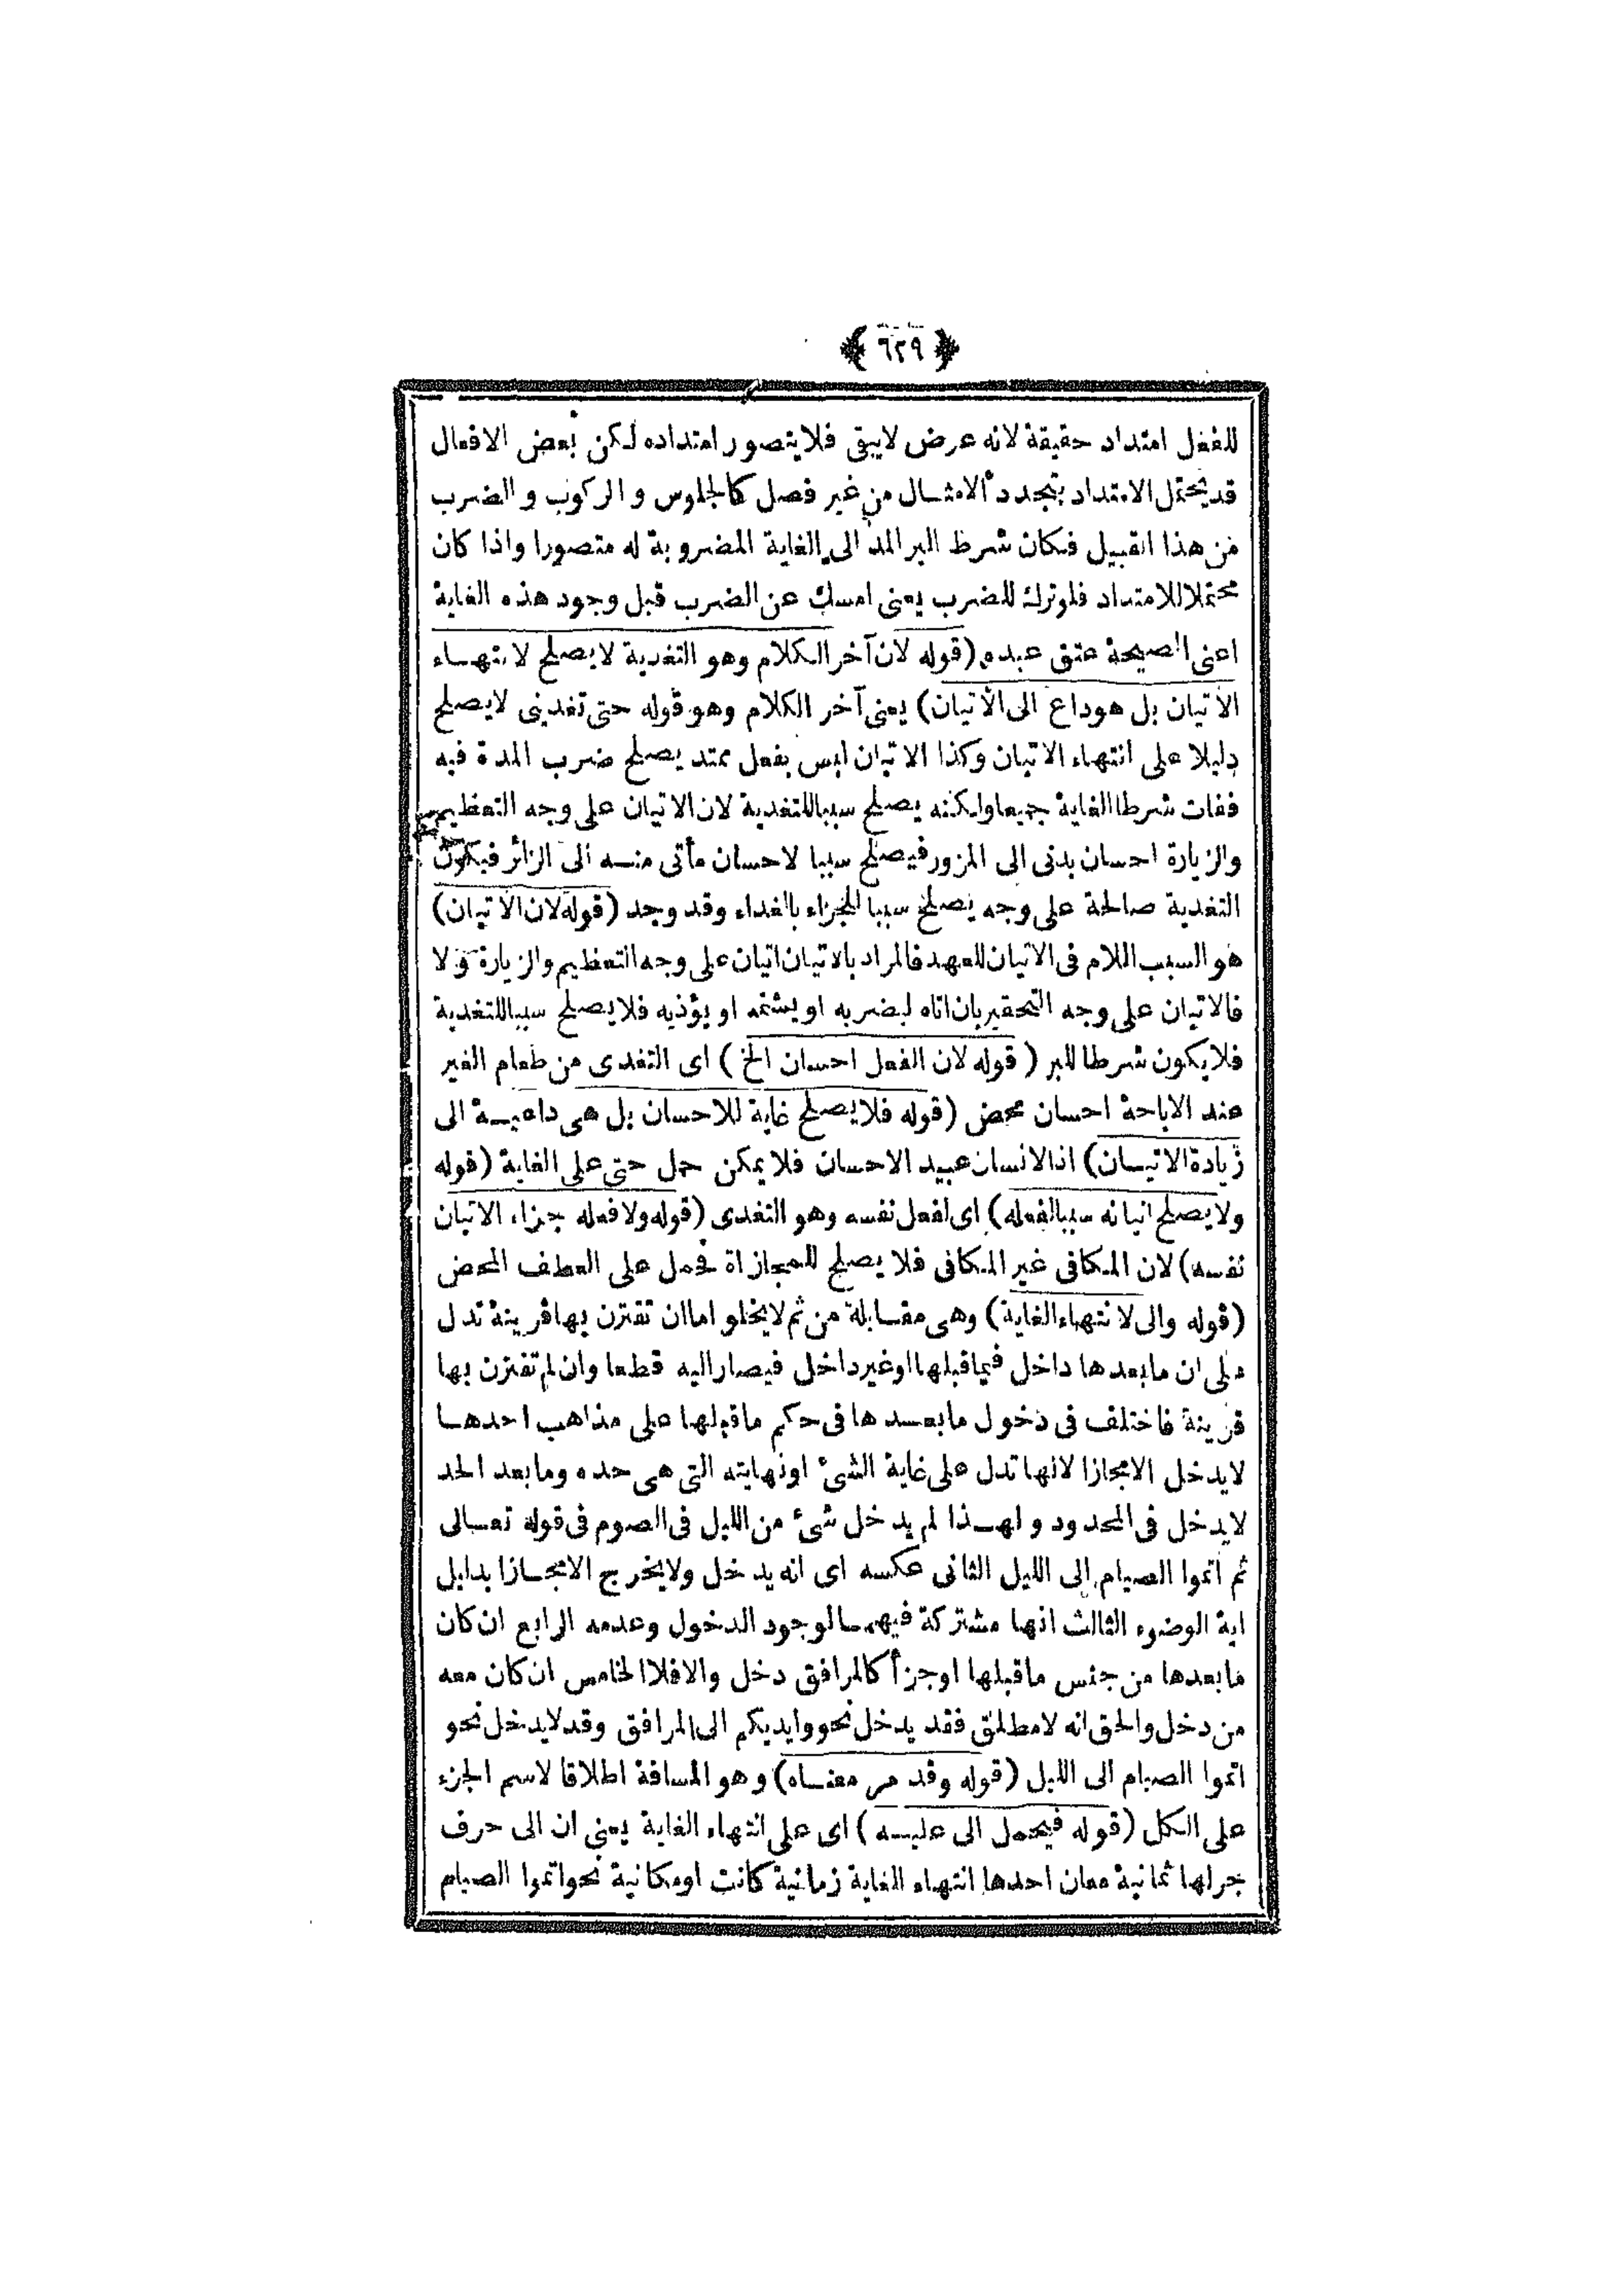 ﴿ ٦٢٩ ﴾
للفعل امتداد حقيقة لانه عرض لايبقى فلايتصور امتداده لكن بعض الافعال
قديحتمل الامتداد بتجدد الامثال من غير فصل كالجلوس و الركوب و الضرب
من هذا القبيل فكان شرط البر المد الى الغاية المضروبة له متصورا واذا كان
محتملا للامتداد فلوترك للضرب يعنى امسك عن الضرب قبل وجود هذه الغاية
اعنى الصيحة عتق عبده (قوله لان آخر الكلام وهو التغدية لايصلح لانتهاء
الاتيان بل هوداع الى الاتيان) يعنى آخر الكلام وهو قوله حتى تغدينى لايصلح
دليلا على انتهاء الاتيان وكذا الاتيان ليس بفعل ممتد يصلح ضرب المدة فيه
ففات شرطا الغاية جميعا ولكنه يصلح سببا للتغدية لان الاتيان على وجه التعظيم
والزيارة احسان بدنى الى المزور فيصلح سببا لاحسان مأتى منه الى الزائر فيكون
التغدية صالحة على وجه يصلح سببا للجزاء بالغداء وقد وجد (قوله لان الاتيان)
هو السبب اللام فى الاتيان للعهد فالمراد بالاتيان اتيان على وجه التعظيم والزيارة ولا
فالاتيان على وجه التحقير بان اتاه ليضربه او يشتمه او يؤذيه فلايصلح سببا للتغدية
فلايكون شرطا للبر ( قوله لان الفعل احسان الخ ) اى التغدى من طعام الغير
عند الاباحة احسان محض (قوله فلايصلح غاية للاحسان بل هى داعية الى
زيادة الاتيان) اذالانسان عبيد الاحسان فلايمكن حمل حتى على الغاية (قوله
ولايصلح اتيانه سببا لفعله) اى لفعل نفسه وهو التغدى (قوله ولافعله جزاء الاتيان
نفسه) لان المكافى غير المكافى فلا يصلح للمجازاة فحمل على العطف المحض
(قوله والى لانتهاء الغاية) وهى مقابلة من ثم لايخلو اما ان تقترن بها قرينة تدل
على ان مابعدها داخل فيما قبلها اوغير داخل فيصار اليه قطعا وان لم تقترن بها
قرينة فاختلف فى دخول مابعدها فى حكم ماقبلها على مذاهب احدها
لايدخل الامجازا لانها تدل على غاية الشئ اونهايته التى هى حده ومابعد الحد
لايدخل فى المحدود و لهذا لم يدخل شئ من الليل فى الصوم فى قوله تعالى
ثم اتموا الصيام الى الليل الثانى عكسه اى انه يدخل ولايخرج الامجازا بدليل
اية الوضوء الثالث انها مشتركة فيهما لوجود الدخول وعدمه الرابع ان كان
مابعدها من جنس ماقبلها اوجزأ كالمرافق دخل والافلا الخامس ان كان معه
من دخل والحق انه لامطلق فقد يدخل نحو وايديكم الى المرافق وقد لايدخل نحو
اتموا الصيام الى الليل (قوله وقد مر معناه) وهو المسافة اطلاقا لاسم الجزء
على الكل (قوله فيحمل الى عليه ) اى على انتهاء الغاية يعنى ان الى حرف
جر لها ثمانية معان احدها انتهاء الغاية زمانية كانت اومكانية نحو اتموا الصيام